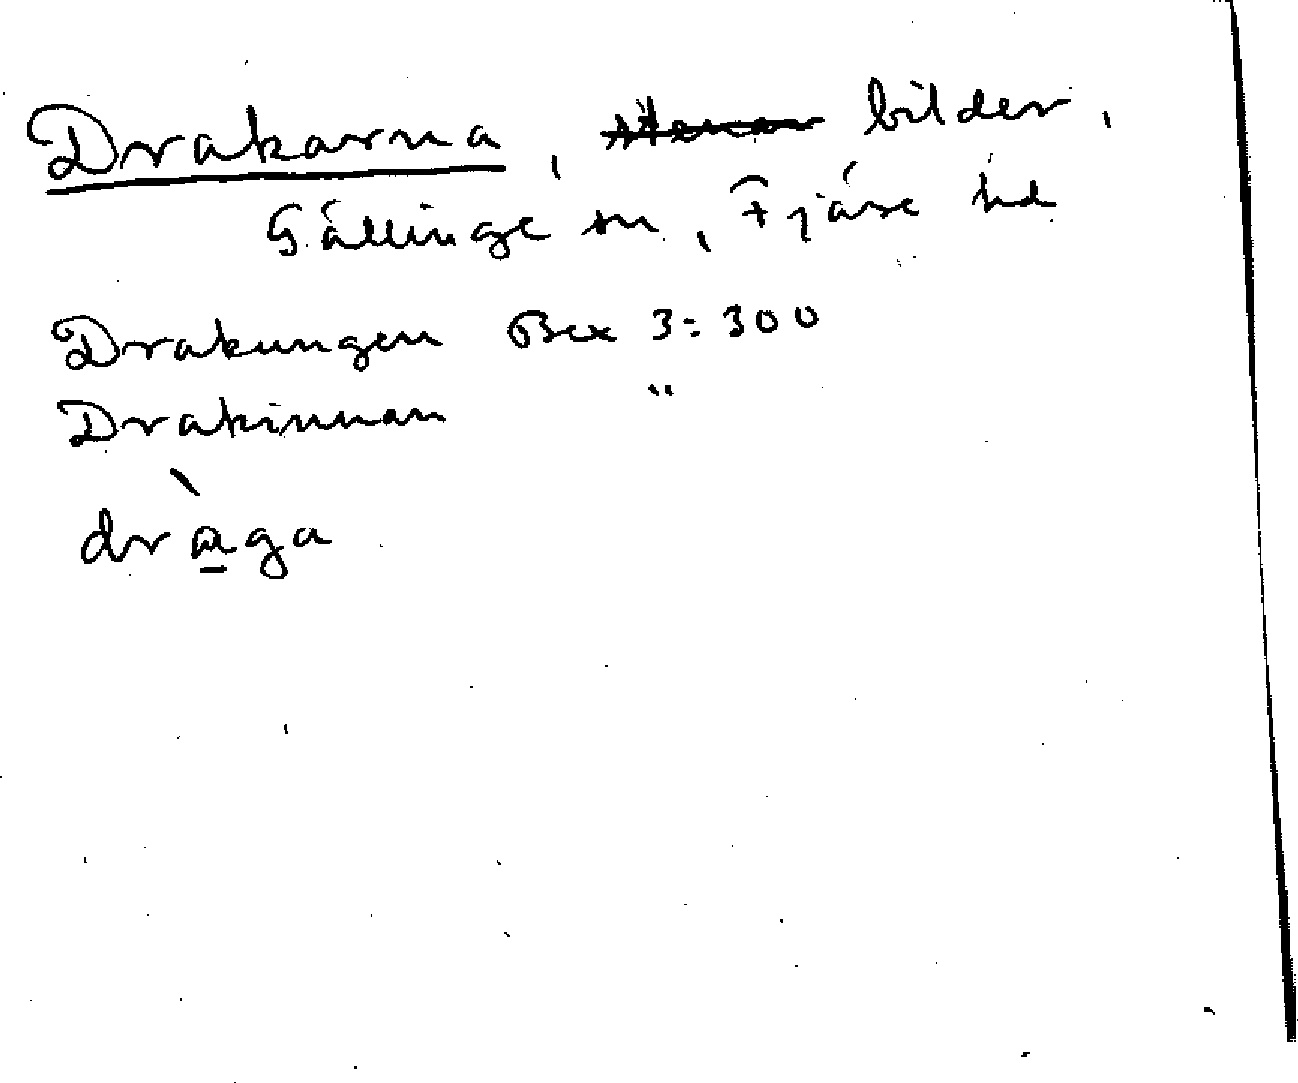 Drakarna, bilder,
Gällinge sn, Fjäre hd
Drakungen Bex 3:300
Drakinnan "
dràga